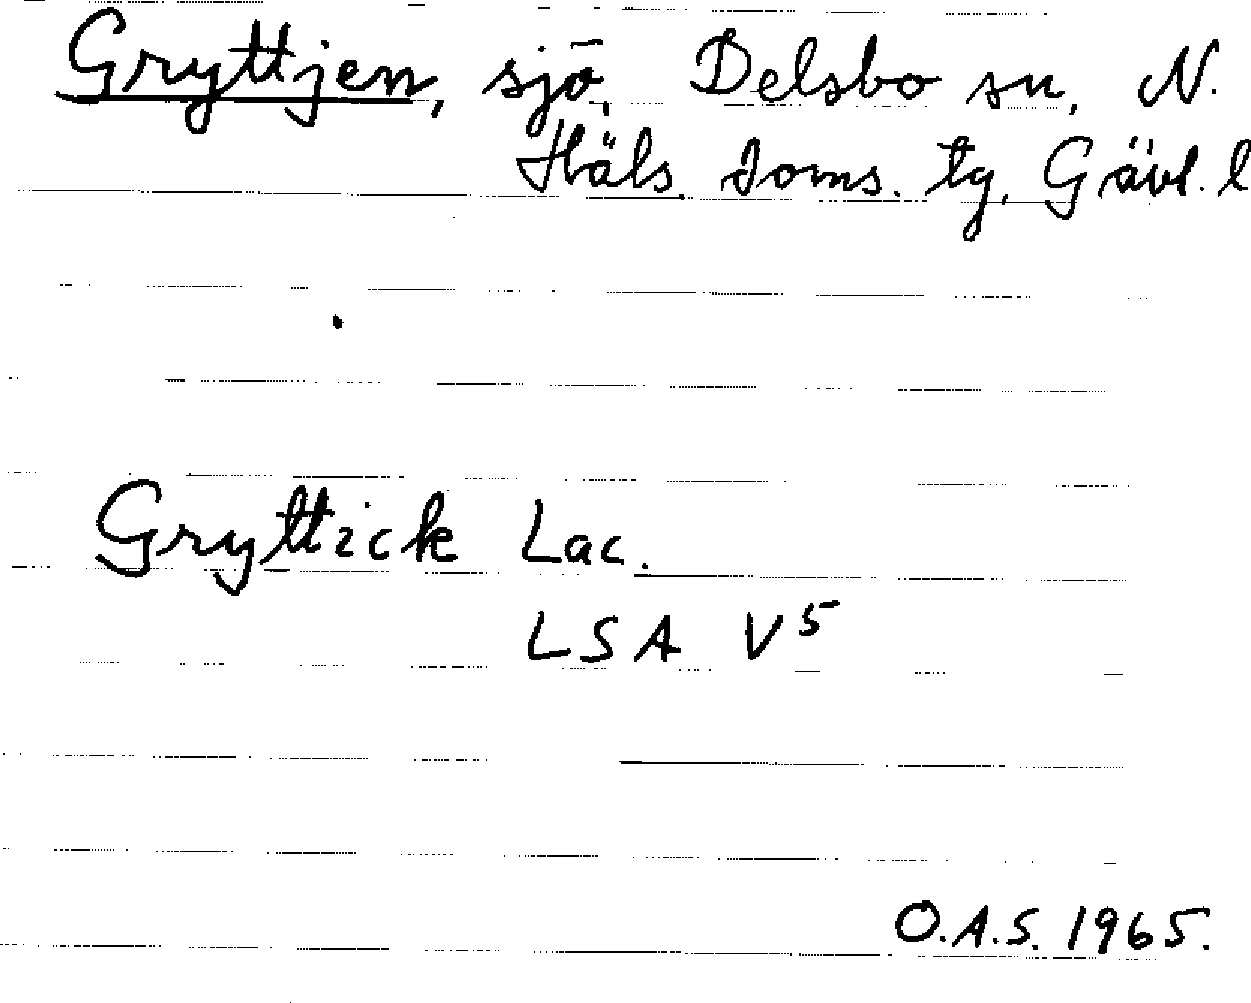 Gryttjen, sjö, Delsbo sn, N.
Häls. doms. tg, Gävl. l
Gryttick Lac.
LSA V5
O.A.S. 1965.